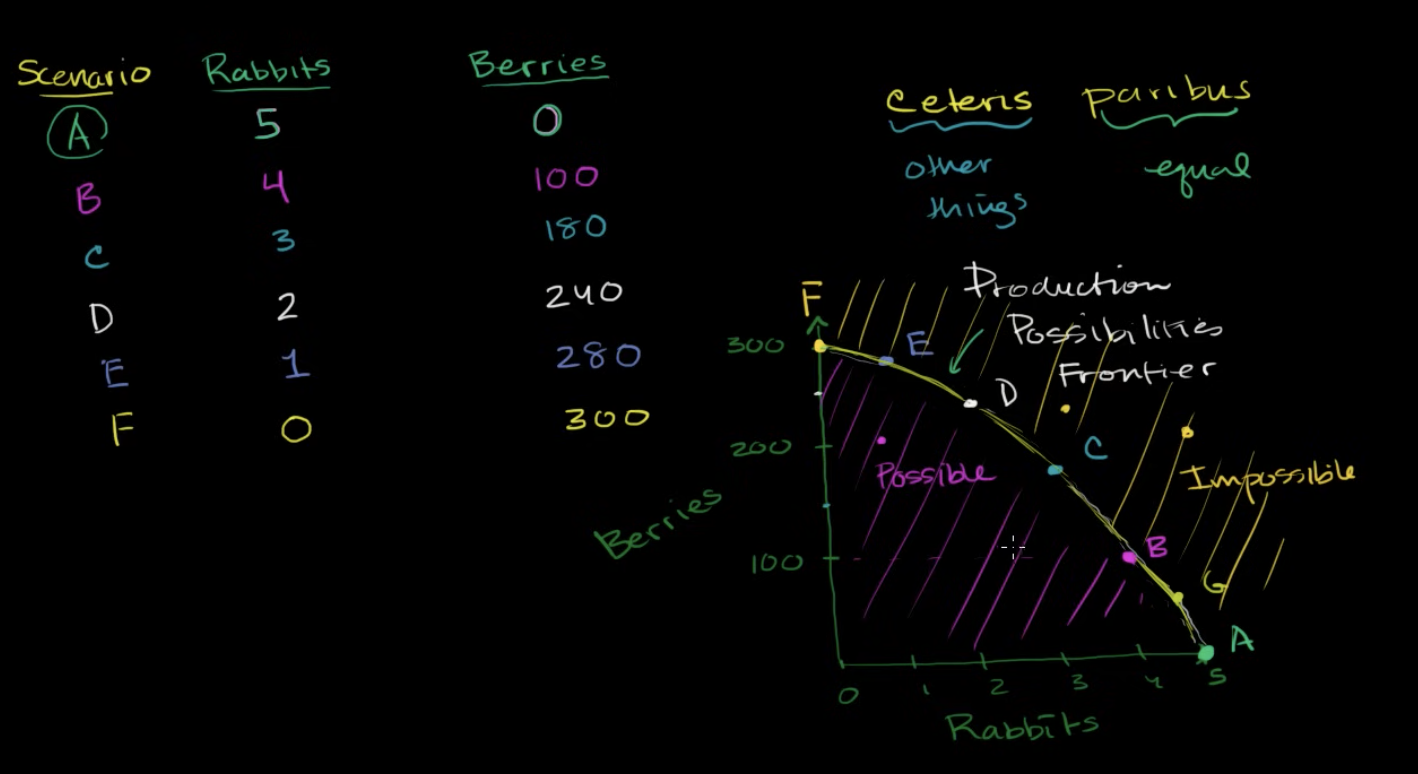 Scenario Rabbits Berries
A 5 0
B 4 100
C 3 180
D 2 240
E 1 280
F 0 300
Ceteris paribus
other things
equal
Production
Possibilities
Frontier
F
300
E
D
200
C
Possible
Impossible
Berries
100
B
G
A
0 1 2 3 4 5
Rabbits